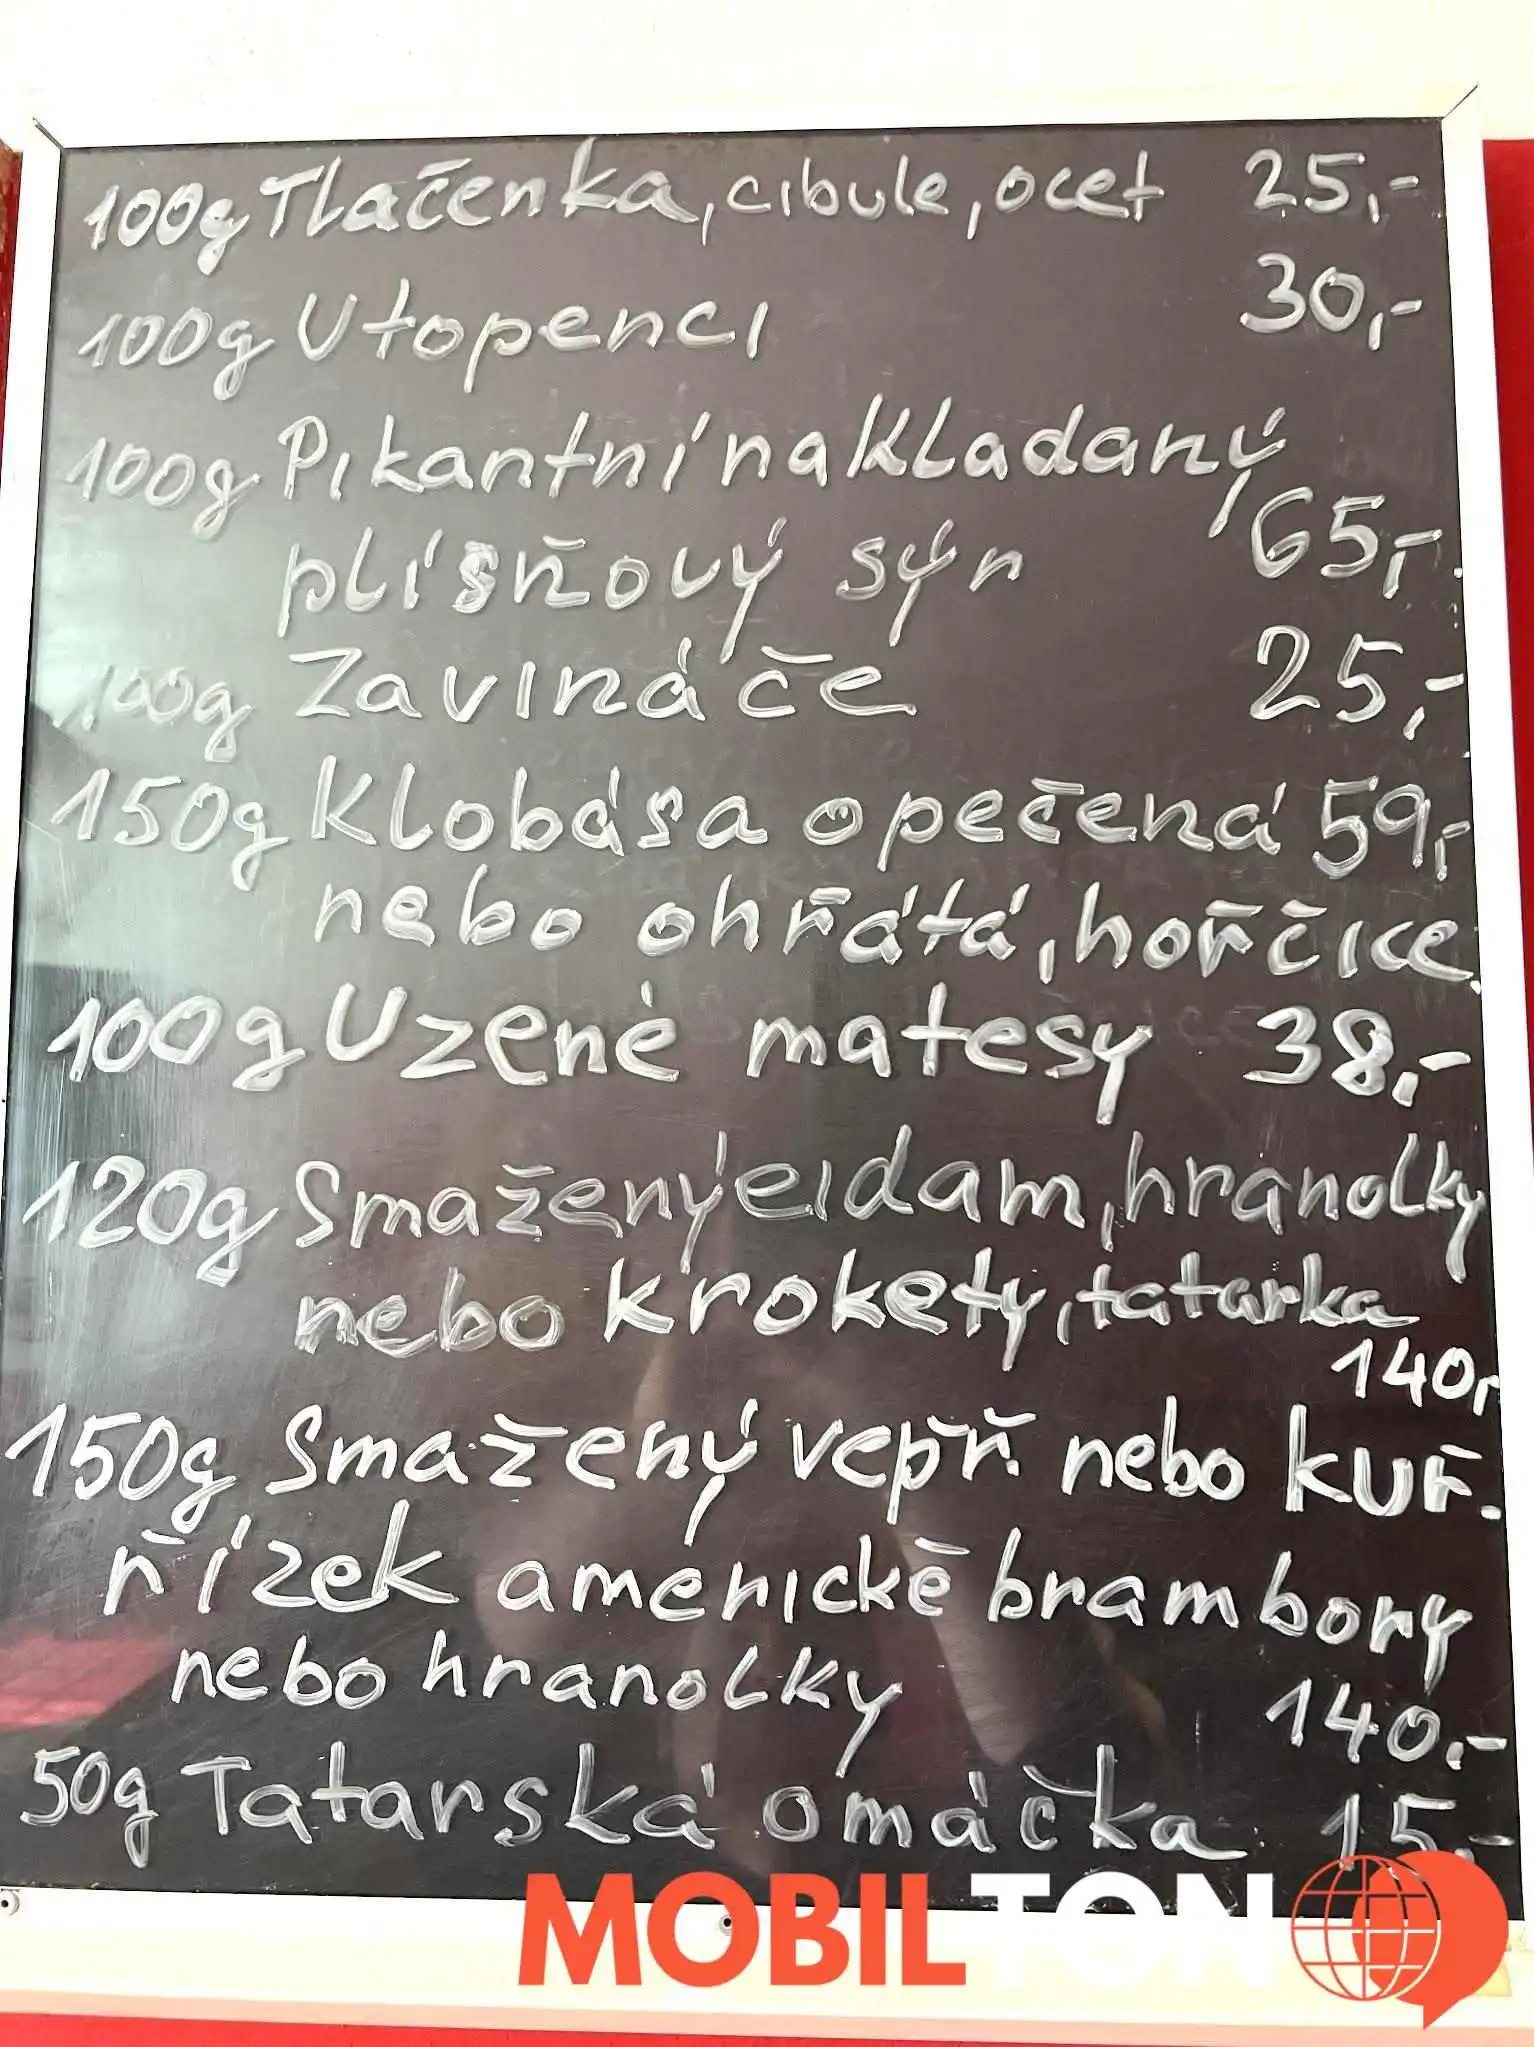 100g Tlačenka, cibule, ocet 25,-
100g Utopenci 30,-
100g Pikantní nakladaný
plísňový sýn 65,-
100g Zavináče 25,-
150g Klobása opečená 59,-
nebo ohřátá, hořčice
100g Uzené matesy 38,-
120g Smažený eidam, hranolky
nebo krokety, tatarka
140,-
150g Smažený vepř. nebo kuř.
řízek americké brambory
nebo hranolky 140.-
50g Tatarská omáčka 15,-
MOBILTON